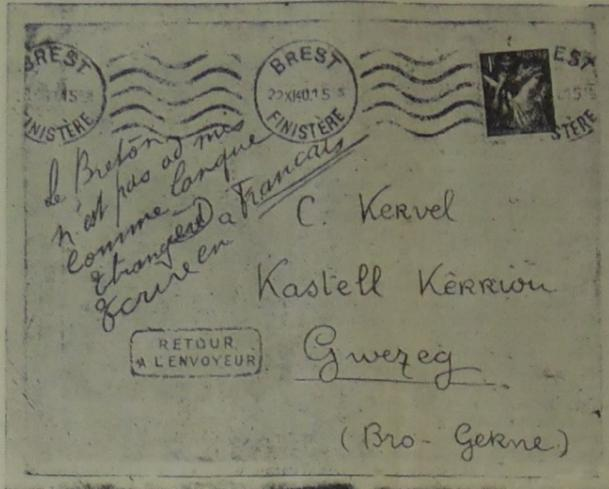 BREST
FINISTÈRE
BREST
22 XI 40.15
FINISTÈRE
EST
STÈRE
Le Breton
n'est pas admis
comme langue
étrangère à
Écrire en Français
RETOUR
A L'ENVOYEUR
C. Kervel
Kastell Kerriou
Gwezeg
(Bro-Gerne)